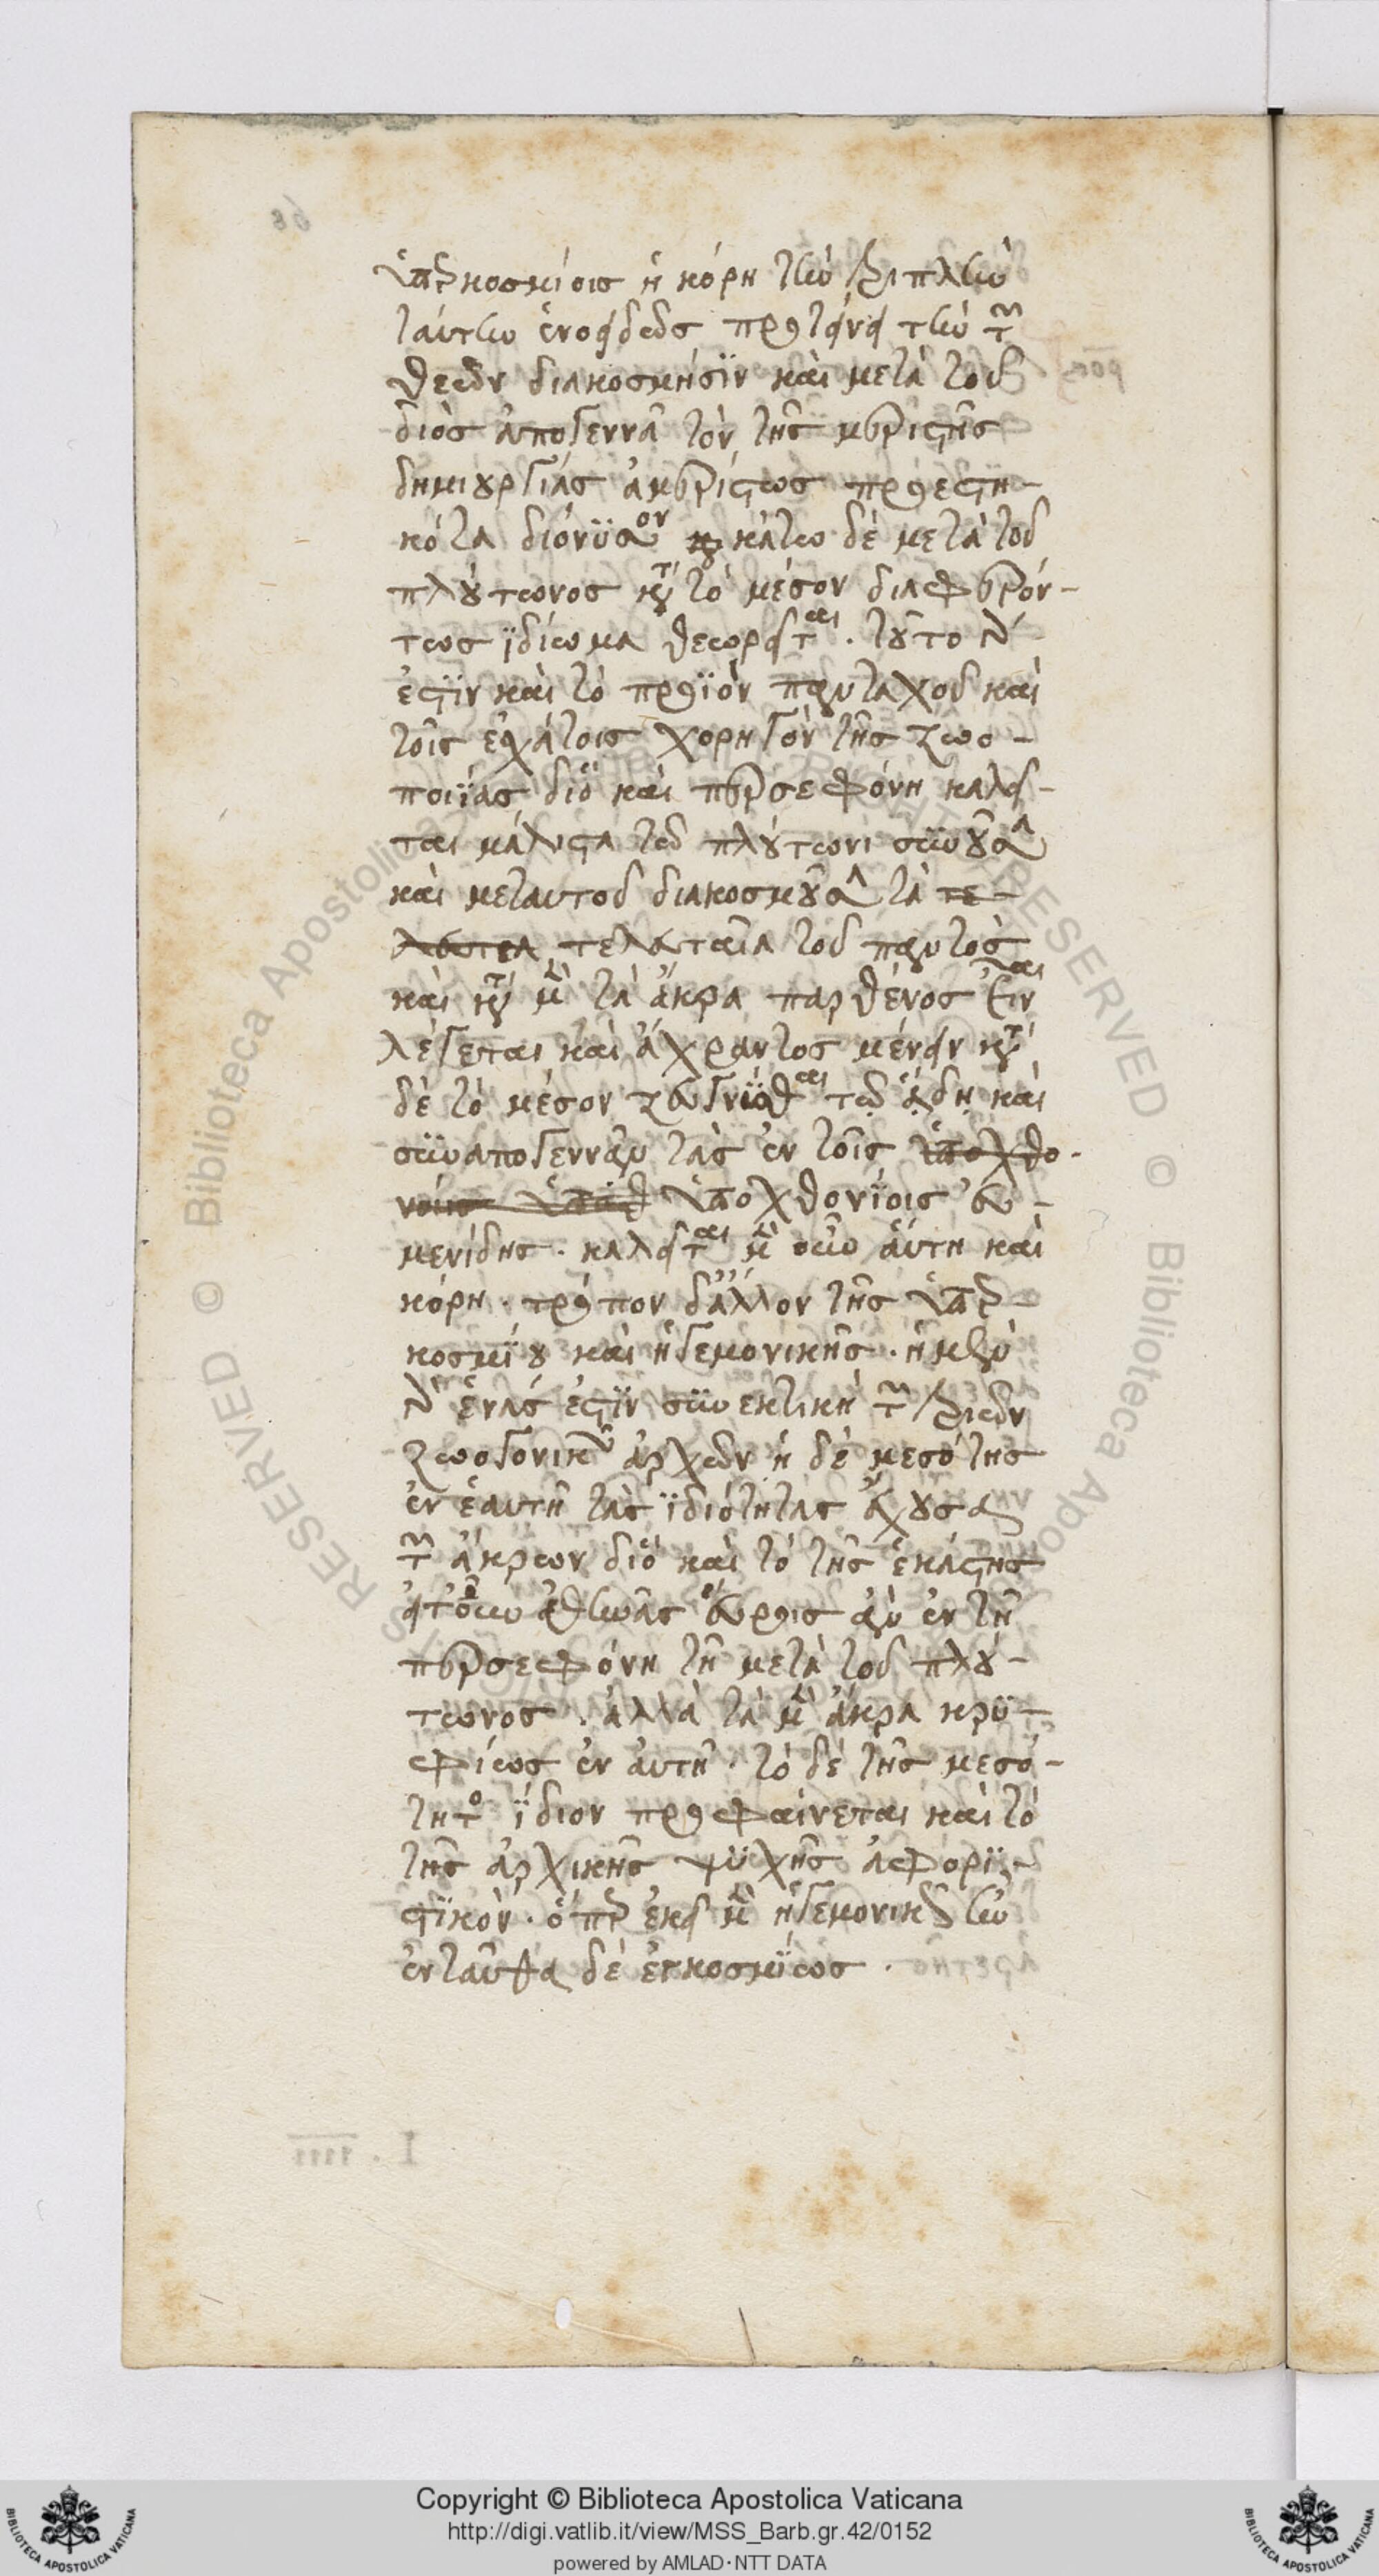 ὑπερκοσμίοις ἡ κόρη τὴν τριπλὴν
ταύτην ἑνοειδῶς προτείνει τὴν τῶν
θεῶν διακόσμησιν καὶ μετὰ τοῦ
διὸς ἀπογεννᾶ τὸν τῆς μεριστῆς
δημιουργίας ἀμερίστως προεστη-
κότα διόνυσον κάτω δὲ μετὰ τοῦ
πλούτωνος κατὰ τὸ μέσον διαφερόν-
τως ἰδίωμα θεωρεῖται. τοῦτο γάρ
ἐστιν καὶ τὸ προϊὸν πανταχοῦ καὶ
τοῖς ἐσχάτοις χορηγὸν τῆς ζωο-
ποιΐας διὸ καὶ περσεφόνη καλεῖ-
ται μάλιστα τῷ πλούτωνι συνοῦσα
καὶ μεταυτοῦ διακοσμοῦσα τὰ τε-
λευτεα τελευταῖα τοῦ παντὸς
καὶ κατὰ μὲν τὰ ἄκρα παρθένος εἶναι
λέγεται καὶ ἄχραντος μένειν κατὰ
δὲ τὸ μέσον ζεύγνυσθαι τῷ ᾅδῃ καὶ
συναπογεννᾶν τὰς ἐν τοῖς ὑποχθο-
νοιις ὑποχθονίοις εὐ-
μενίδης. καλεῖται μὲν οὖν αὕτη καὶ
κόρη. τρόπον δ'ἄλλον τῆς ὑπερ-
κοσμίου καὶ ἡγεμονικῆς. ἡ μὲν
γὰρ ἑνάς ἐστιν συνεκτικὴ τῶν τριῶν
ζωογονικῶν ἀρχῶν ἡ δὲ μεσότης
ἐν ἑαυτῇ τὰς ἰδιότητας ἔχουσα
τῶν ἄκρων διὸ καὶ τὸ τῆς ἑκάτης
εἶτοῦν ἀθηνᾶς εὕροις ἂν ἐν τῇ
περσεφόνη τῇ μετὰ τοῦ πλού-
τωνος. ἀλλὰ τὰ μὲν ἄκρα κρυ-
φίως ἐν αὐτῇ. τὸ δὲ τῆς μεσό-
τητος ἴδιον προφαίνεται καὶ τὸ
τῆς ἀρχικῆς ψυχῆς ἀφορι-
στικὸν. ὅπερ ἐκεῖ μὲν ἡγεμονικῶς ἦν
ἐνταῦθα δὲ ἐγκοσμίως.
Copyright © Biblioteca Apostolica Vaticana
http://digi.vatlib.it/view/MSS_Barb.gr.42/0152
powered by AMLAD·NTT DATA